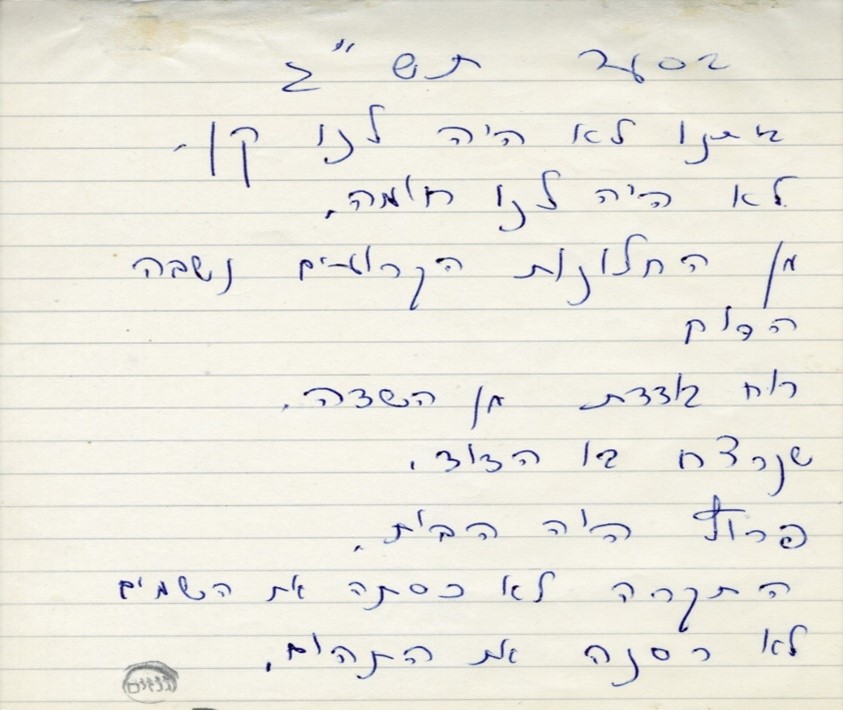 ביתנו לא היה לנו קן.
לא היה לנו חומה.
מן החלונות הקרועים נשבה
רוח בודדת מן השדה.
שנרצח בו הדוד.
פרוץ היה הבית.
התקרה לא כסתה את השמים
לא רסנה את התהום.
גנזים